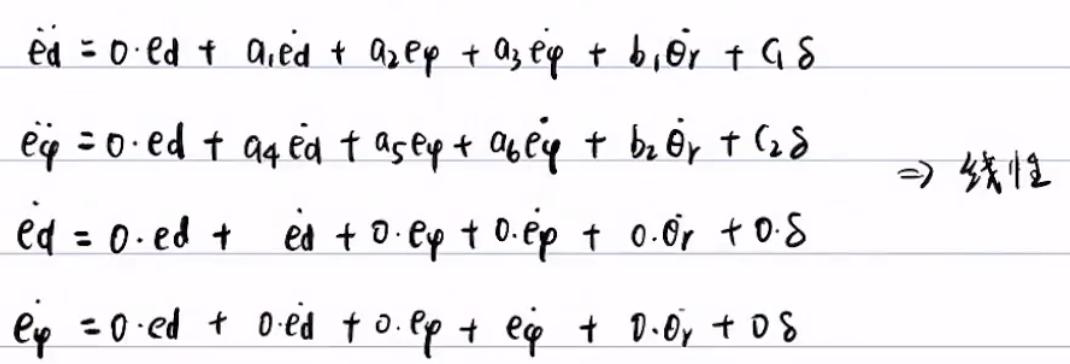 ëd = 0·ed + a₁ėd + a₂eφ + a₃ėφ + b₁θ̇r + C₁δ
ëφ = 0·ed + a₄ėd + a₅eφ + a₆ėφ + b₂θ̇r + C₂δ
⇒ 线性
ėd = 0·ed + ėd + 0·eφ + 0·ėφ + 0·θ̇r + 0·δ
ėφ = 0·ed + 0·ėd + 0·eφ + ėφ + 0·θ̇r + 0δ